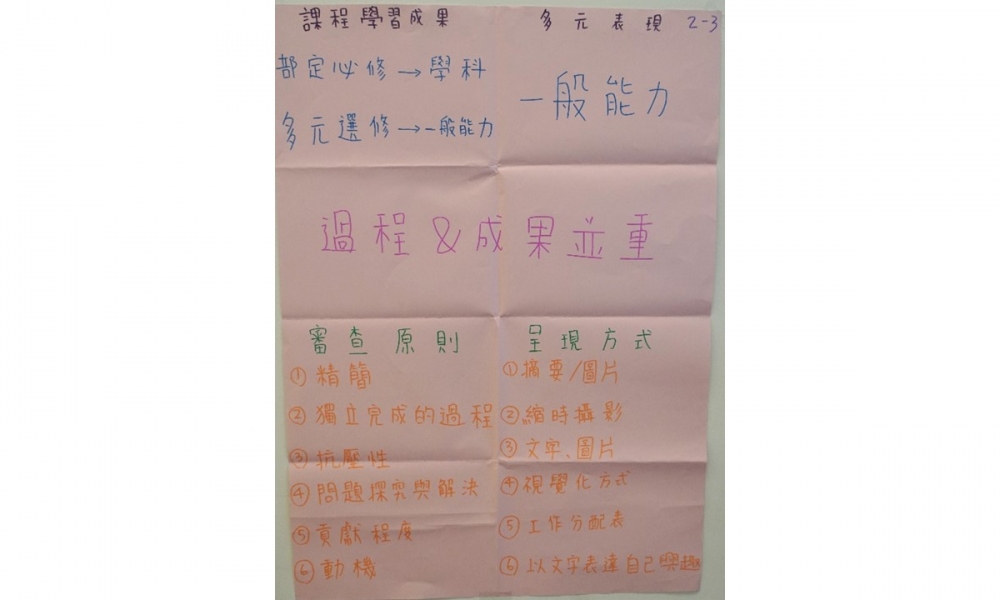 課程學習成果
多元表現 2-3
部定必修→學科
多元選修→一般能力
一般能力
過程&成果並重
審查原則
①精簡
②獨立完成的過程
③抗壓性
④問題探究與解決
⑤貢獻程度
⑥動機
呈現方式
①摘要/圖片
②縮時攝影
③文字、圖片
④視覺化方式
⑤工作分配表
⑥以文字表達自己興趣